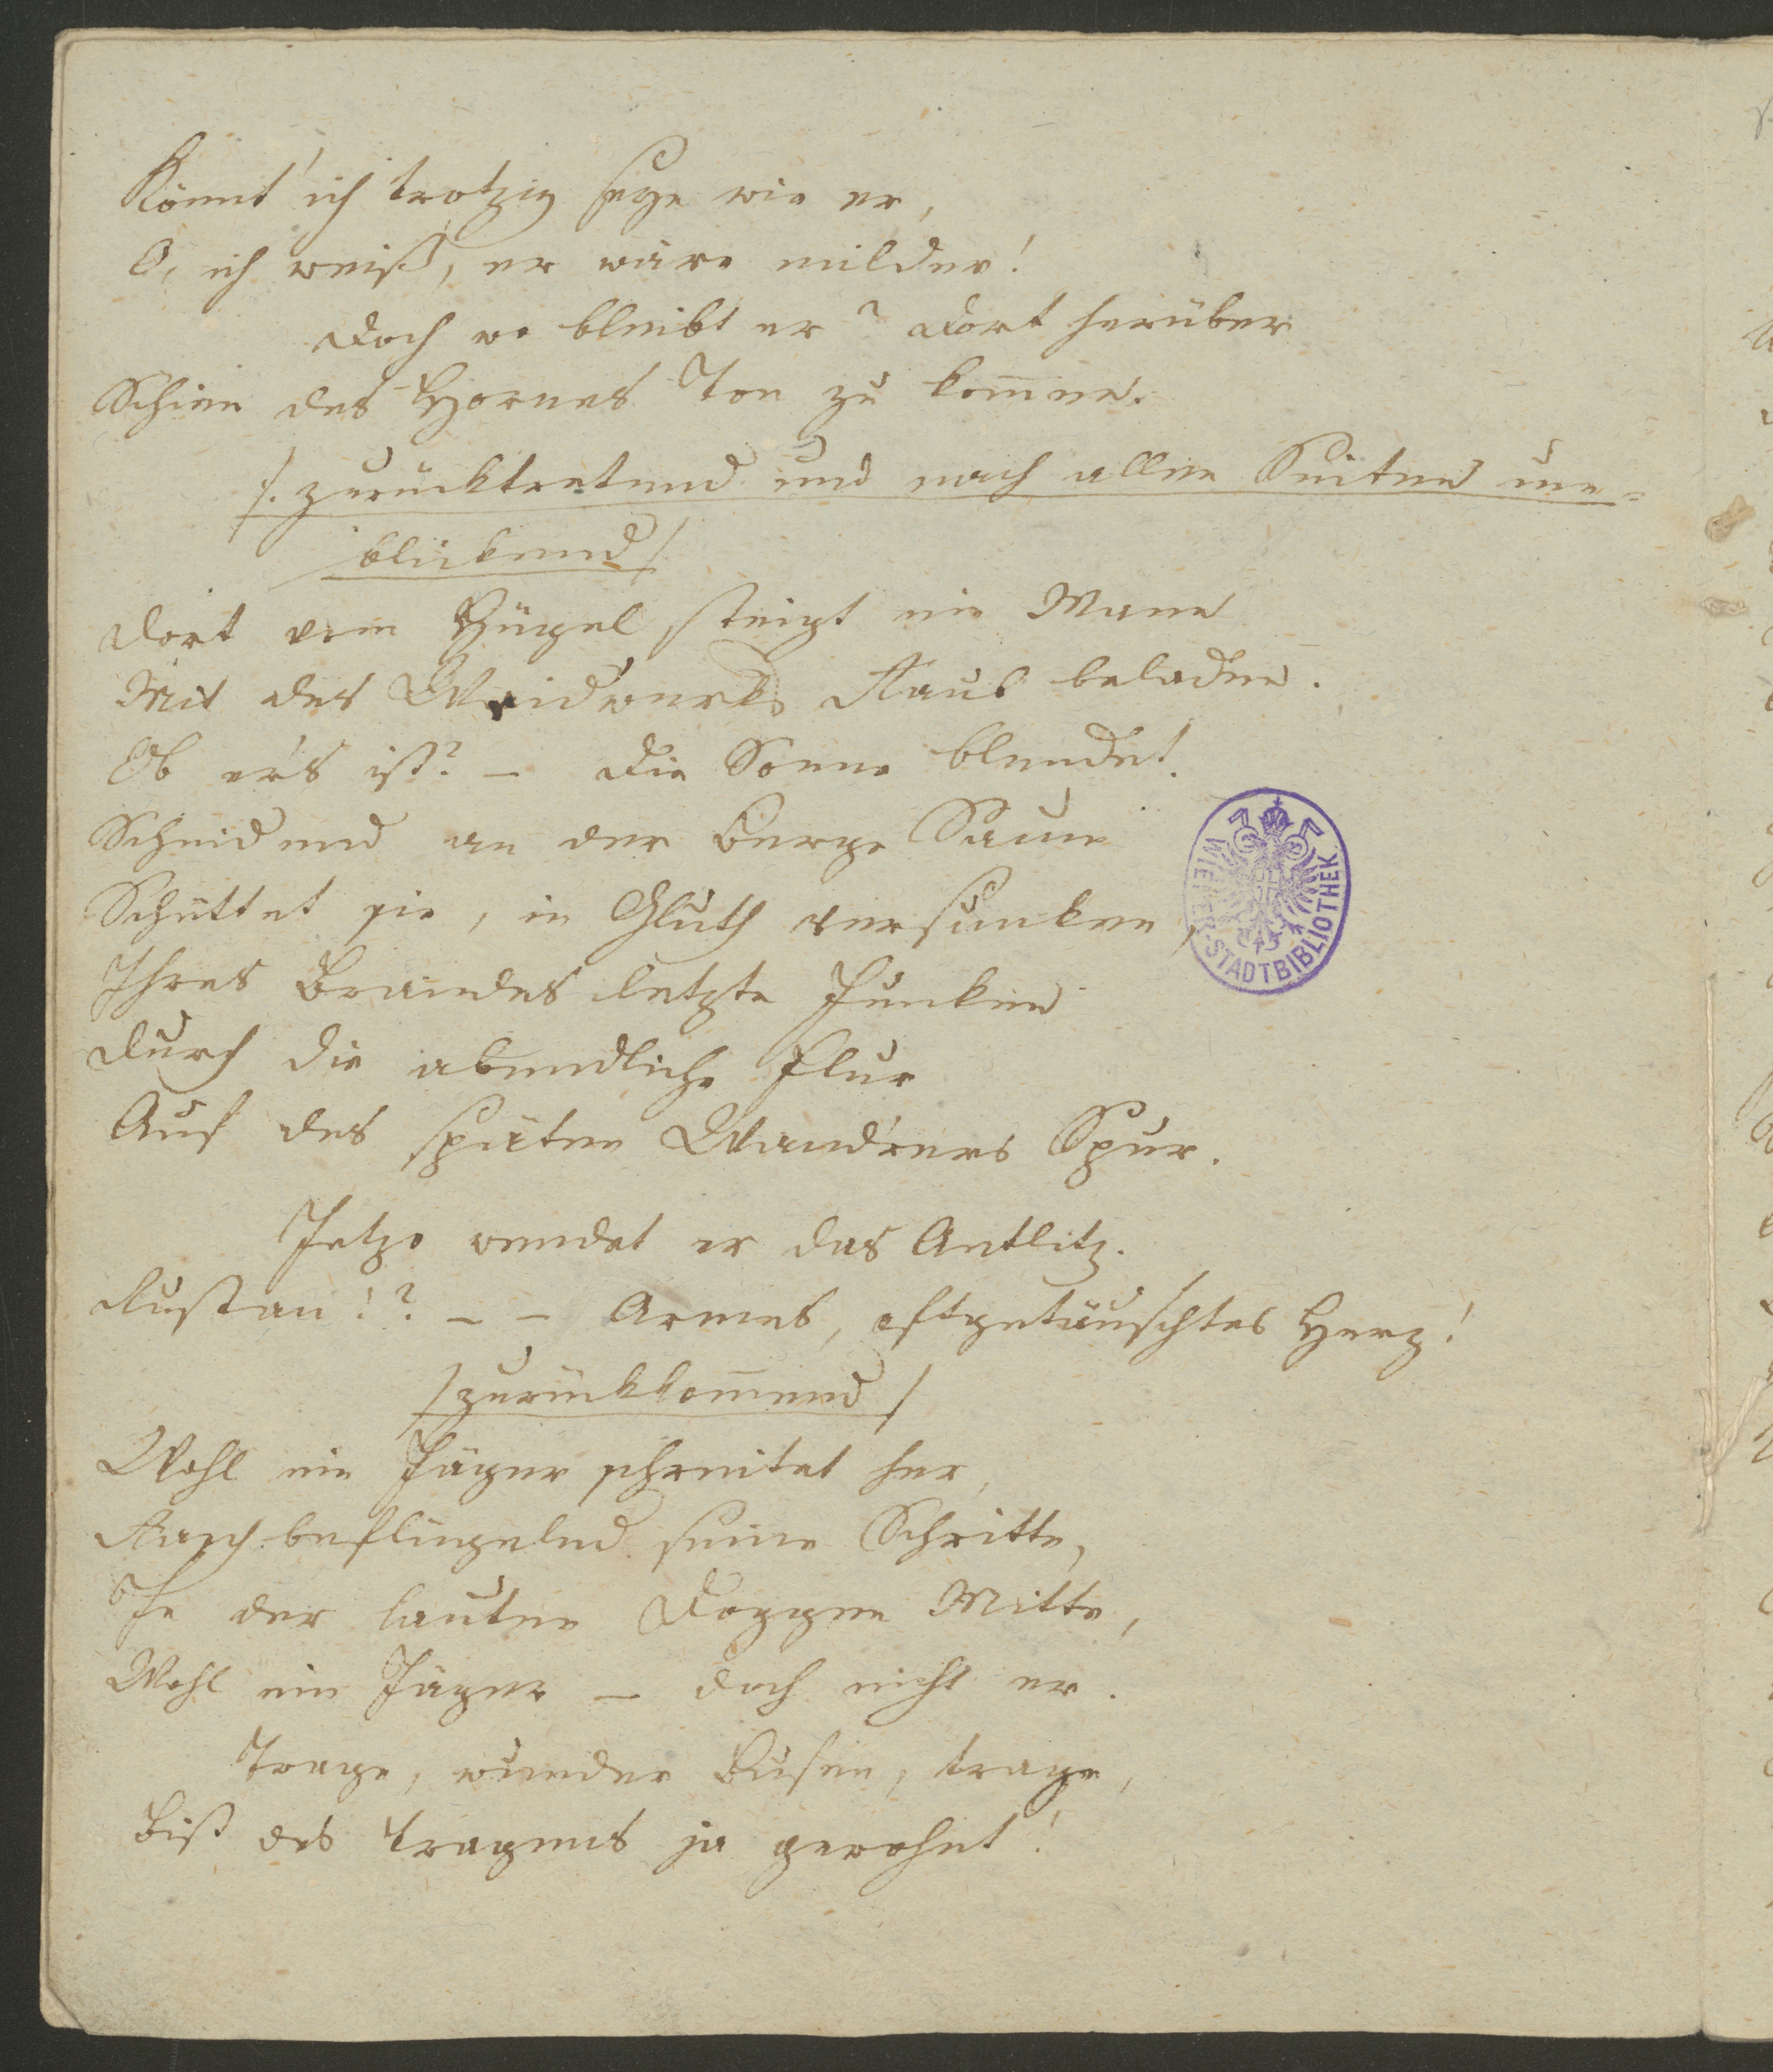 Könnt' ich trotzig seyn wie er,
O, ich weiß, er wäre milder!
Doch wo bleibt er? Dort herüber
Schien des Hornes Ton zu kom̄en.
/: zurücktretend und nach allen Seiten um-
blickend /
Dort vom Hügel steigt ein Mann
Mit des Waidwerks Raub beladen.
Ob er's ist? – Die Sonne blendet.
Scheidend an der Berge Saum
Schüttet sie, in Gluth versunken,
Ihres Brandes letzte Funken
Durch die abendliche Flur
Auf des späten Wandrers Spur.
Jetzo wendet er das Antlitz.
Rustan!? – – Armes, oftgetäuschtes Herz!
/ zurückkom̄end /
Wohl ein Jäger schreitet her,
Rasch beflügelnd seine Schritte,
In der lauten Doggen Mitte,
Wohl ein Jäger – doch nicht er.
Trage, wunder Busen, trage,
Bist des Tragens ja gewohnt!
WIENER-STADTBIBLIOTHEK